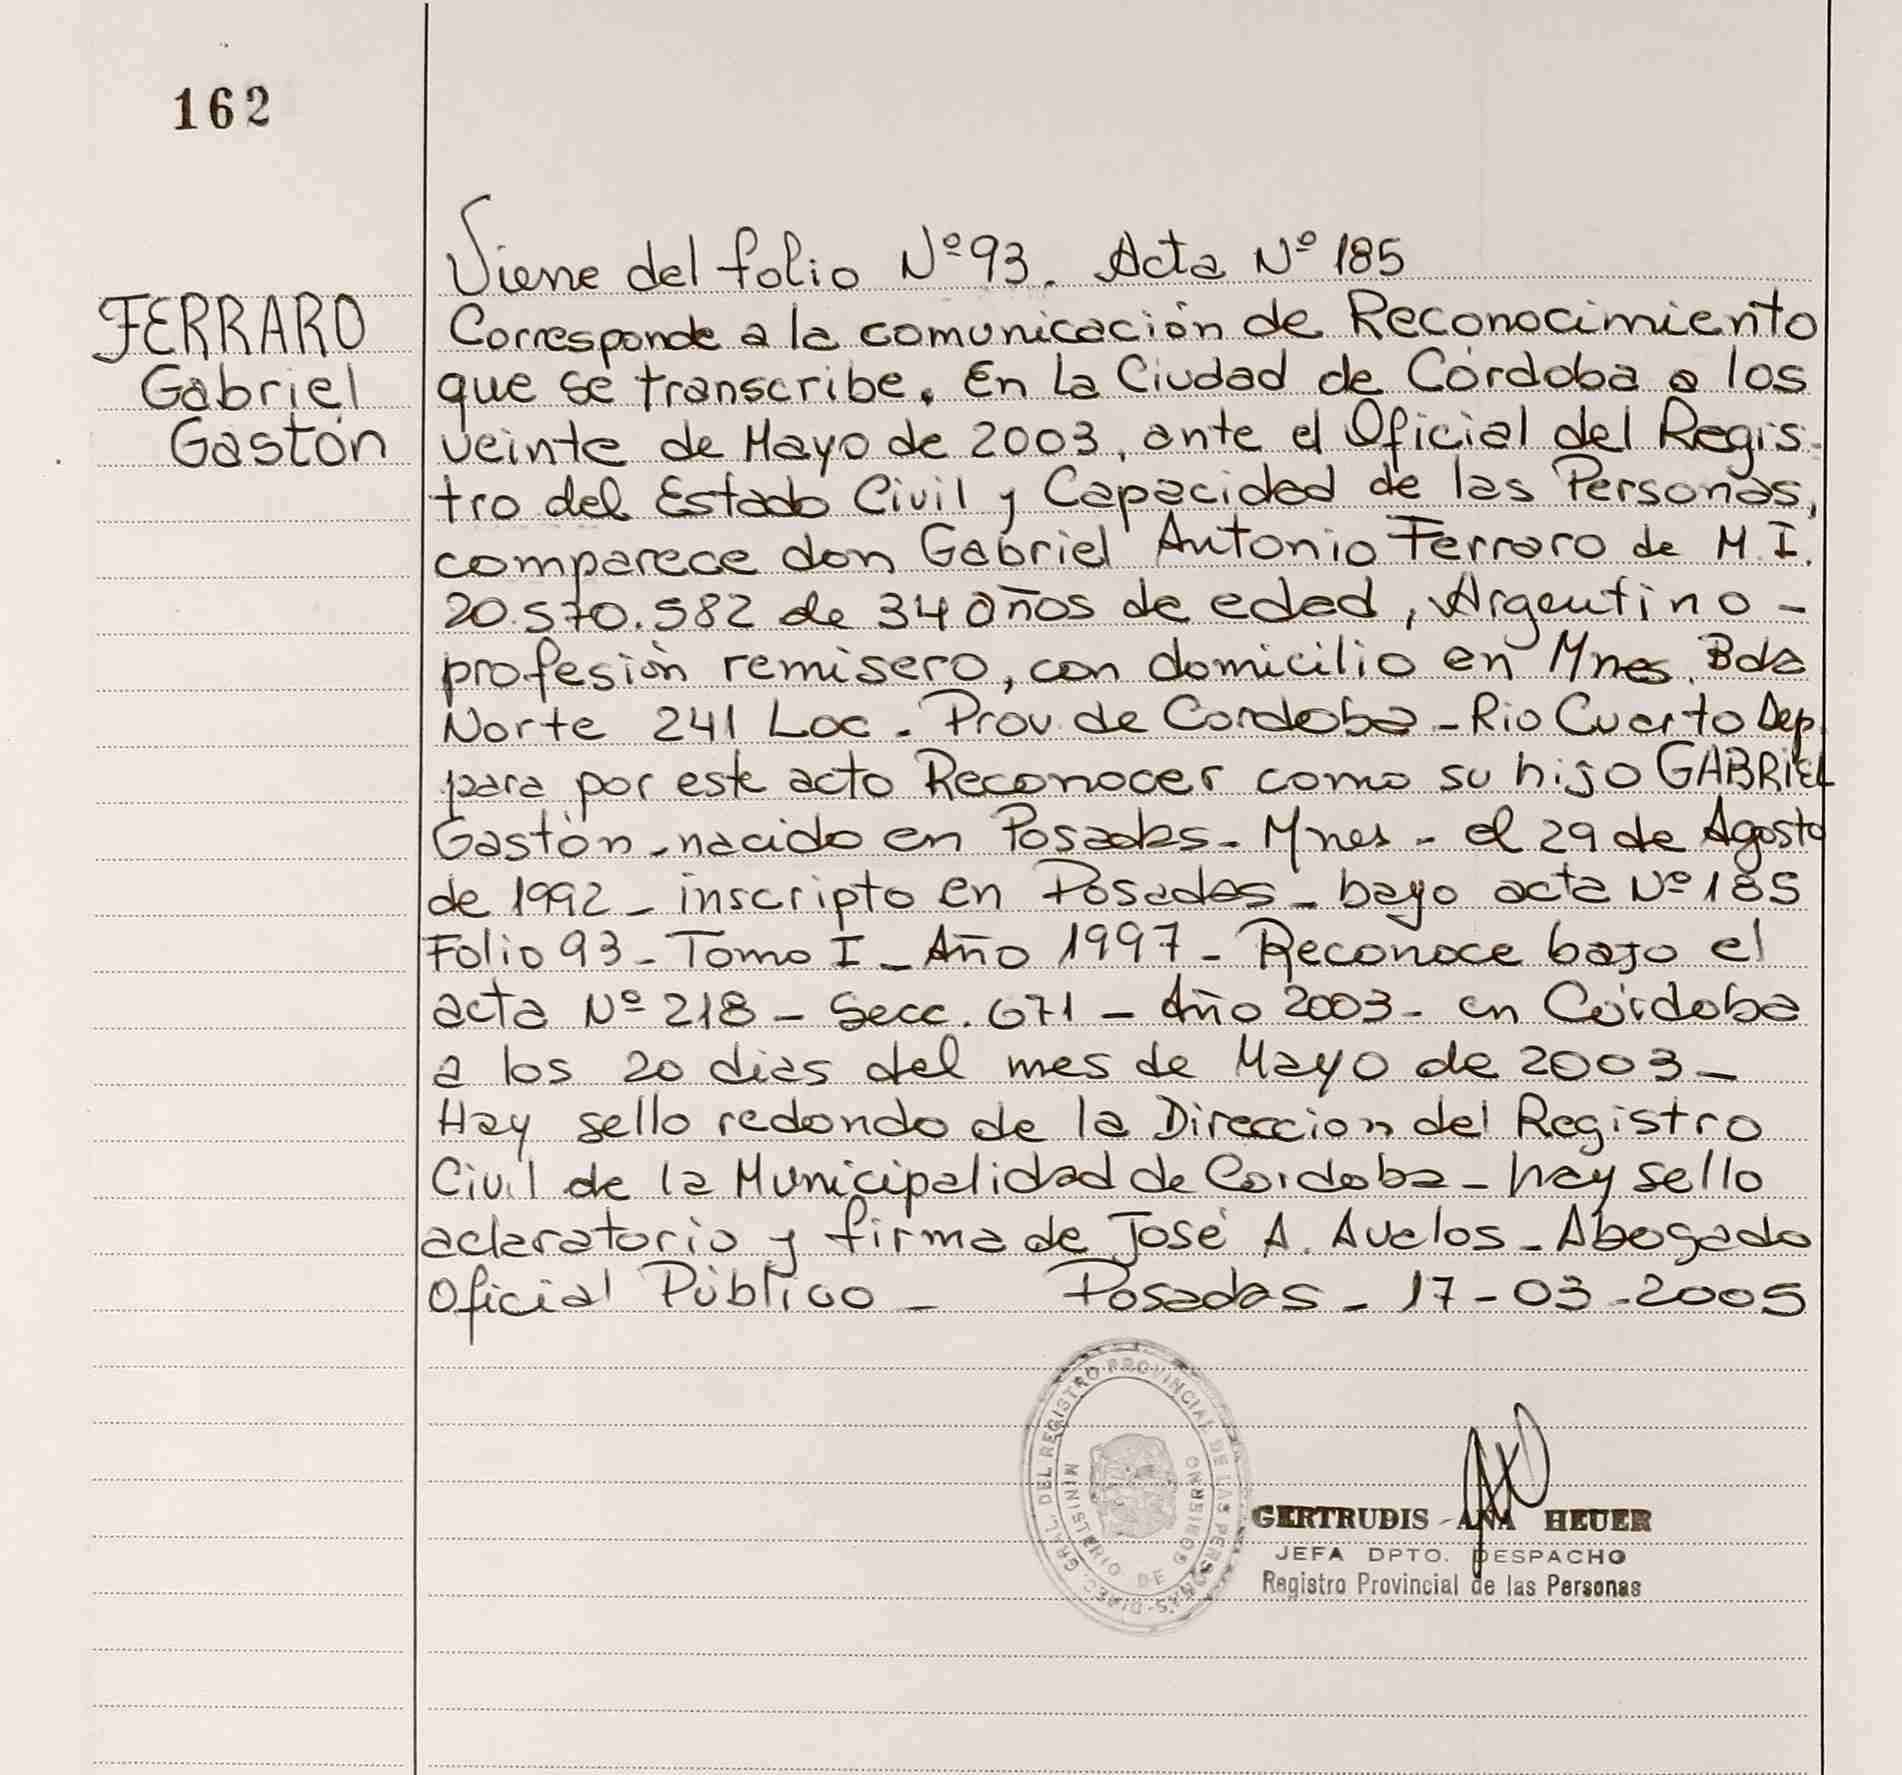 162
Viene del folio Nº 93. Acta Nº 185
FERRARO
Gabriel
Gastón
Corresponde a la comunicación de Reconocimiento
que se transcribe. En La Ciudad de Córdoba a los
veinte de Mayo de 2003, ante el Oficial del Regis-
tro del Estado Civil y Capacidad de las Personas,
comparece don Gabriel Antonio Ferraro de M.I.
20.570.582 de 34 años de edad, Argentino -
profesión remisero, con domicilio en Mnes. Bda
Norte 241 Loc. Prov. de Cordoba - Rio Cuarto Dep.
para por este acto Reconocer como su hijo GABRIEL
Gastón - nacido en Posadas - Mnes - el 29 de Agosto
de 1992 - inscripto en Posadas - bayo acta Nº 185
Folio 93 - Tomo I - Año 1997 - Reconoce bajo el
acta Nº 218 - Secc. 671 - Año 2003 - en Córdoba
a los 20 dias del mes de Mayo de 2003 -
Hay sello redondo de la Direccion del Registro
Civil de la Municipalidad de Cordoba - hay sello
aclaratorio y firma de José A. Avelos - Abogado
Oficial Público - Posadas - 17-03-2005
DIREC. GRAL. DEL REGISTRO PROVINCIAL DE LAS PERSONAS
MINISTERIO DE GOBIERNO
GERTRUDIS ANA HEUER
JEFA DPTO. DESPACHO
Registro Provincial de las Personas